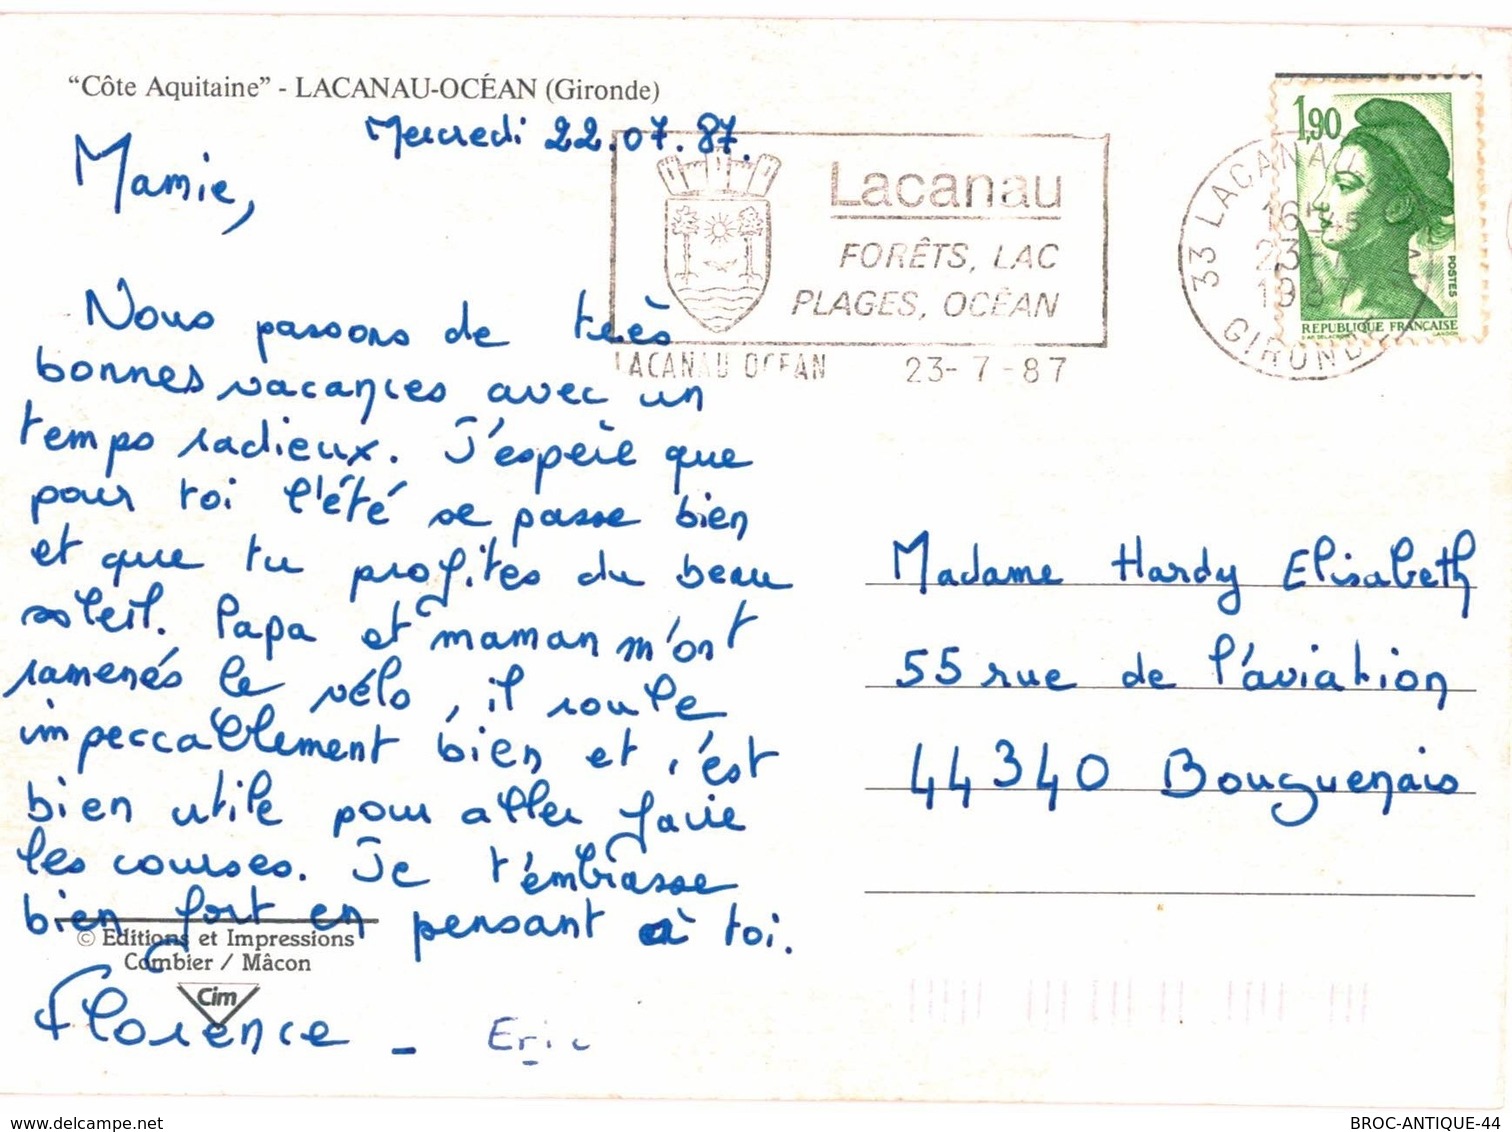 "Côte Aquitaine" - LACANAU-OCÉAN (Gironde)
Mercredi 22.07.87.
Mamie,
Nous passons de très
bonnes vacances avec un
temps radieux. J'espère que
pour toi l'été se passe bien
et que tu profites du beau
soleil. Papa et maman m'ont
ramenés le vélo, il roule
impeccablement bien et c'est
bien utile pour aller faire
les courses. Je t'embrasse
bien fort en pensant à toi.
Florence - Eric
© Editions et Impressions
Combier / Mâcon
Cim
Lacanau
FORÊTS, LAC
PLAGES, OCÉAN
LACANAU OCEAN 23-7-87
33 LACANAU
16H45
23-7
1987
GIRONDE
1,90
POSTES
REPUBLIQUE FRANÇAISE
Madame Hardy Elisabeth
55 rue de l'aviation
44340 Bouguenais
delcampe.net
BROC-ANTIQUE-44